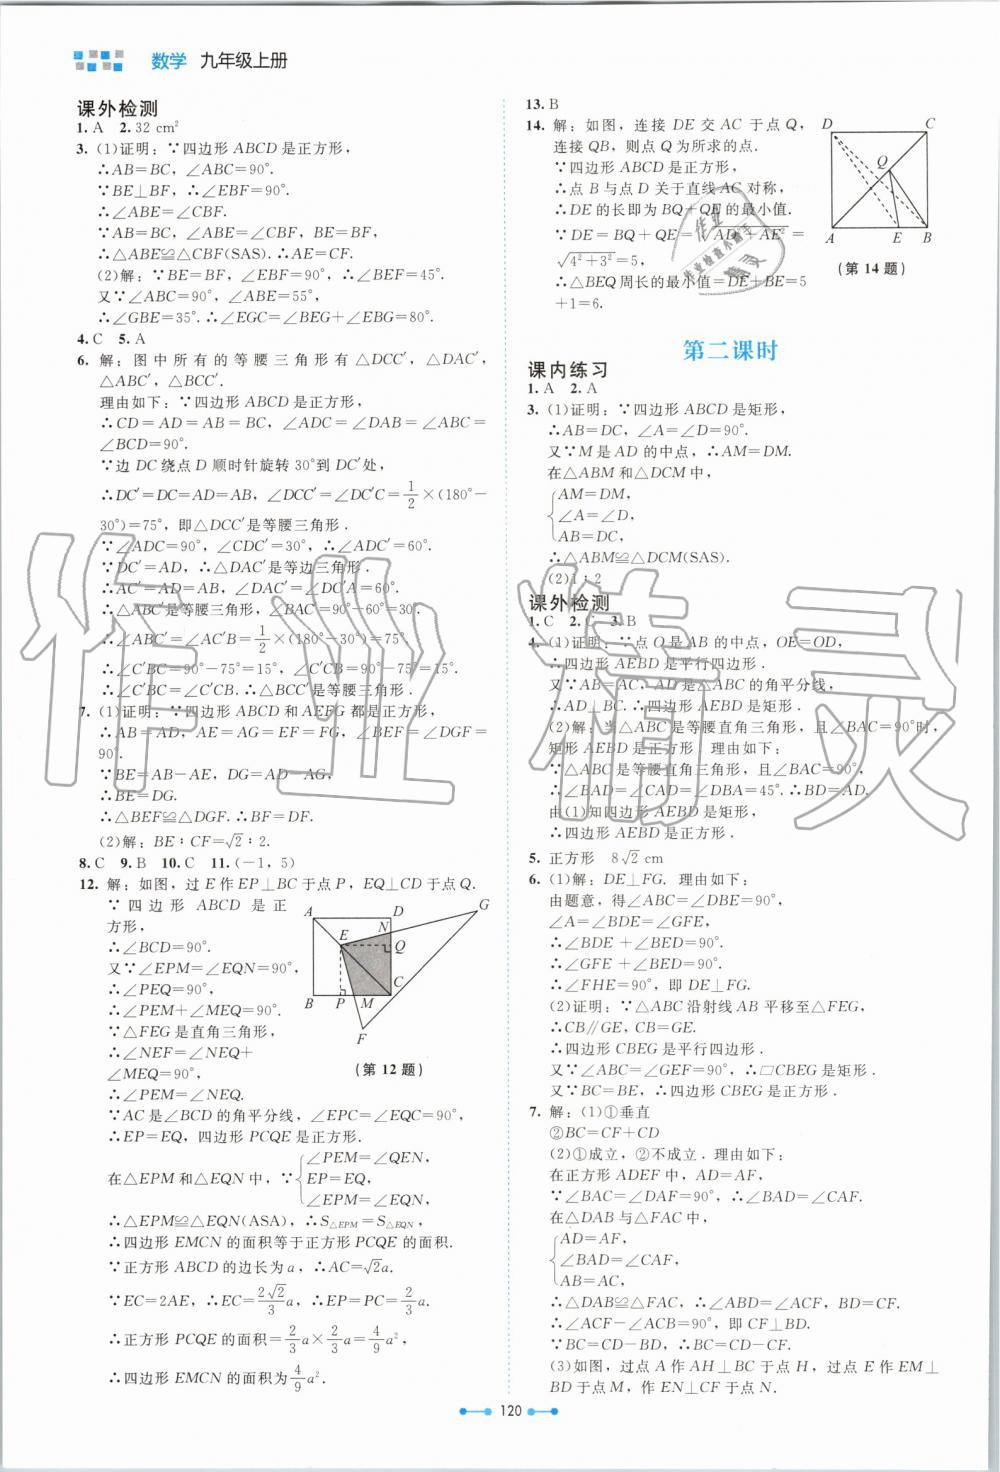 数学 九年级上册
课外检测
1. A 2. 32 cm²
3. (1)证明：∵四边形 ABCD 是正方形，
∴AB＝BC，∠ABC＝90°.
∵BE⊥BF，∴∠EBF＝90°.
∴∠ABE＝∠CBF.
∵AB＝BC，∠ABE＝∠CBF，BE＝BF，
∴△ABE≌△CBF(SAS). ∴AE＝CF.
(2)解：∵BE＝BF，∠EBF＝90°，∴∠BEF＝45°.
又∵∠ABC＝90°，∠ABE＝55°，
∴∠GBE＝35°. ∴∠EGC＝∠BEG＋∠EBG＝80°.
4. C 5. A
6. 解：图中所有的等腰三角形有△DCC′，△DAC′，
△ABC′，△BCC′.
理由如下：∵四边形 ABCD 是正方形，
∴CD＝AD＝AB＝BC，∠ADC＝∠DAB＝∠ABC＝
∠BCD＝90°.
∵边 DC 绕点 D 顺时针旋转 30°到 DC′处，
∴DC′＝DC＝AD＝AB，∠DCC′＝∠DC′C＝1/2×(180°－
30°)＝75°，即△DCC′是等腰三角形.
∵∠ADC＝90°，∠CDC′＝30°，∴∠ADC′＝60°.
∵DC′＝AD，∴△DAC′是等边三角形.
∴AC′＝AD＝AB，∠DAC′＝∠DC′A＝60°.
∴△ABC′是等腰三角形，∠BAC′＝90°－60°＝30°.
∴∠ABC′＝∠AC′B＝1/2×(180°－30°)＝75°.
∴∠C′BC＝90°－75°＝15°，∠C′CB＝90°－75°＝15°.
∴∠C′BC＝∠C′CB. ∴△BCC′是等腰三角形.
7. (1)证明：∵四边形 ABCD 和 AEFG 都是正方形，
∴AB＝AD，AE＝AG＝EF＝FG，∠BEF＝∠DGF＝
90°.
∵BE＝AB－AE，DG＝AD－AG，
∴BE＝DG.
∴△BEF≌△DGF. ∴BF＝DF.
(2)解：BE∶CF＝√2∶2.
8. C 9. B 10. C 11. (－1，5)
12. 解：如图，过 E 作 EP⊥BC 于点 P，EQ⊥CD 于点 Q.
∵四边形 ABCD 是正
方形，
∴∠BCD＝90°.
又∵∠EPM＝∠EQN＝90°，
∴∠PEQ＝90°.
∴∠PEM＋∠MEQ＝90°.
∵△FEG 是直角三角形，
∴∠NEF＝∠NEQ＋
∠MEQ＝90°.
∴∠PEM＝∠NEQ.
A D G N E Q C B P M F
(第 12 题)
∵AC 是∠BCD 的角平分线，∠EPC＝∠EQC＝90°，
∴EP＝EQ，四边形 PCQE 是正方形.
在△EPM 和△EQN 中，∵{∠PEM＝∠QEN，
EP＝EQ，
∠EPM＝∠EQN，
∴△EPM≌△EQN(ASA)，∴S△EPM＝S△EQN，
∴四边形 EMCN 的面积等于正方形 PCQE 的面积.
∵正方形 ABCD 的边长为 a，∴AC＝√2a.
∵EC＝2AE，∴EC＝2√2/3a，∴EP＝PC＝2/3a.
∴正方形 PCQE 的面积＝2/3a×2/3a＝4/9a²，
∴四边形 EMCN 的面积＝4/9a².
13. B
14. 解：如图，连接 DE 交 AC 于点 Q，
连接 QB，则点 Q 为所求的点.
∵四边形 ABCD 是正方形，
∴点 B 与点 D 关于直线 AC 对称，
∴DE 的长即为 BQ＋QE 的最小值.
∵DE＝BQ＋QE＝√AD²＋AE²＝
√4²＋3²＝5，
∴△BEQ 周长的最小值＝DE＋BE＝5
＋1＝6.
D C Q A E B
(第 14 题)
第二课时
课内练习
1. A 2. A
3. (1)证明：∵四边形 ABCD 是矩形，
∴AB＝DC，∠A＝∠D＝90°.
又∵M 是 AD 的中点，∴AM＝DM.
在△ABM 和△DCM 中，
{AM＝DM，
∠A＝∠D，
AB＝DC，
∴△ABM≌△DCM(SAS).
(2)1∶2
课外检测
1. C 2. C 3. B
4. (1)证明：∵点 O 是 AB 的中点，OE＝OD，
∴四边形 AEBD 是平行四边形.
又∵AB＝AC，AD 是△ABC 的角平分线，
∴AD⊥BC. ∴四边形 AEBD 是矩形.
(2)解：当△ABC 是等腰直角三角形，且∠BAC＝90°时，
矩形 AEBD 是正方形. 理由如下：
∵△ABC 是等腰直角三角形，且∠BAC＝90°，
∴∠BAD＝∠CAD＝∠DBA＝45°. ∴BD＝AD.
由(1)知四边形 AEBD 是矩形，
∴四边形 AEBD 是正方形.
5. 正方形 8√2 cm
6. (1)解：DE⊥FG. 理由如下：
由题意，得∠ABC＝∠DBE＝90°，
∠A＝∠BDE＝∠GFE，
∴∠BDE＋∠BED＝90°.
∴∠GFE＋∠BED＝90°.
∴∠FHE＝90°，即 DE⊥FG.
(2)证明：∵△ABC 沿射线 AB 平移至△FEG，
∴CB∥GE，CB＝GE.
∴四边形 CBEG 是平行四边形.
又∵∠ABC＝∠GEF＝90°，∴▱CBEG 是矩形.
又∵BC＝BE，∴四边形 CBEG 是正方形.
7. 解：(1)①垂直
②BC＝CF＋CD
(2)①成立，②不成立. 理由如下：
在正方形 ADEF 中，AD＝AF，
∵∠BAC＝∠DAF＝90°，∴∠BAD＝∠CAF.
在△DAB 与△FAC 中，
{AD＝AF，
∠BAD＝∠CAF，
AB＝AC，
∴△DAB≌△FAC，∴∠ABD＝∠ACF，BD＝CF.
∴∠ACF－∠ACB＝90°，即 CF⊥BD.
∵BC＝CD－BD，∴BC＝CD－CF.
(3)如图，过点 A 作 AH⊥BC 于点 H，过点 E 作 EM⊥
BD 于点 M，作 EN⊥CF 于点 N.
120
作业精灵